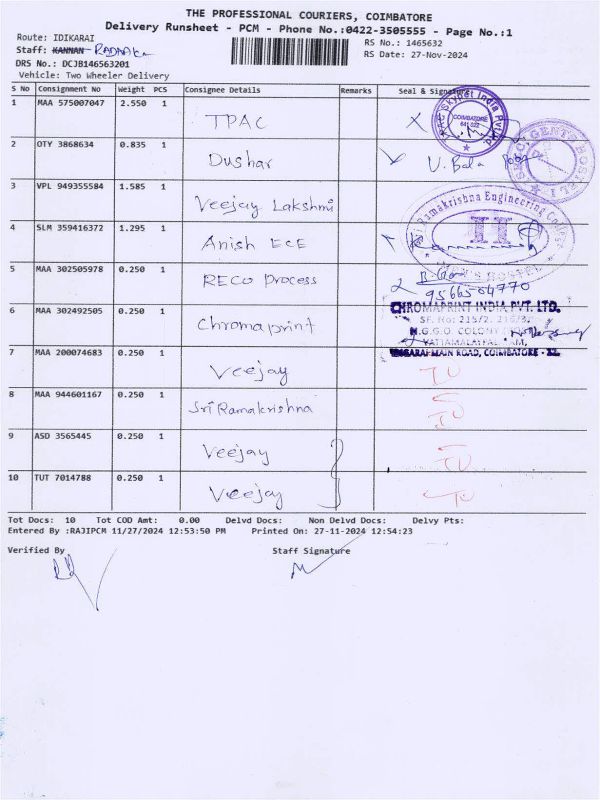 THE PROFESSIONAL COURIERS, COIMBATORE
Delivery Runsheet - PCM - Phone No.:0422-3505555 - Page No.:1
Route: IDIKARAI
RS No.: 1465632
Staff: KANNAN
RS Date: 27-Nov-2024
DRS No.: DCJB146563201
Vehicle: Two Wheeler Delivery
S No Consignment No Weight PCS Consignee Details Remarks Seal & Signature
1 MAA 575007047 2.550 1 TPAC
2 OTY 3868634 0.835 1 Dushar U. Bala
3 VPL 949355584 1.585 1 Veejay Lakshmi
4 SLM 359416372 1.295 1 Anish ECE
5 MAA 302505978 0.250 1 RECO Process
6 MAA 302492505 0.250 1 Chromaprint
CHROMAPRINT INDIA PVT. LTD.
7 MAA 200074683 0.250 1 Veejay
8 MAA 944601167 0.250 1 Sri Ramakrishna
9 ASD 3565445 0.250 1 Veejay
10 TUT 7014788 0.250 1 Veejay
Tot Docs: 10 Tot COD Amt: 0.00 Delvd Docs: Non Delvd Docs: Delvy Pts:
Entered By :RAJIPCM 11/27/2024 12:53:50 PM Printed On: 27-11-2024 12:54:23
Verified By Staff Signature